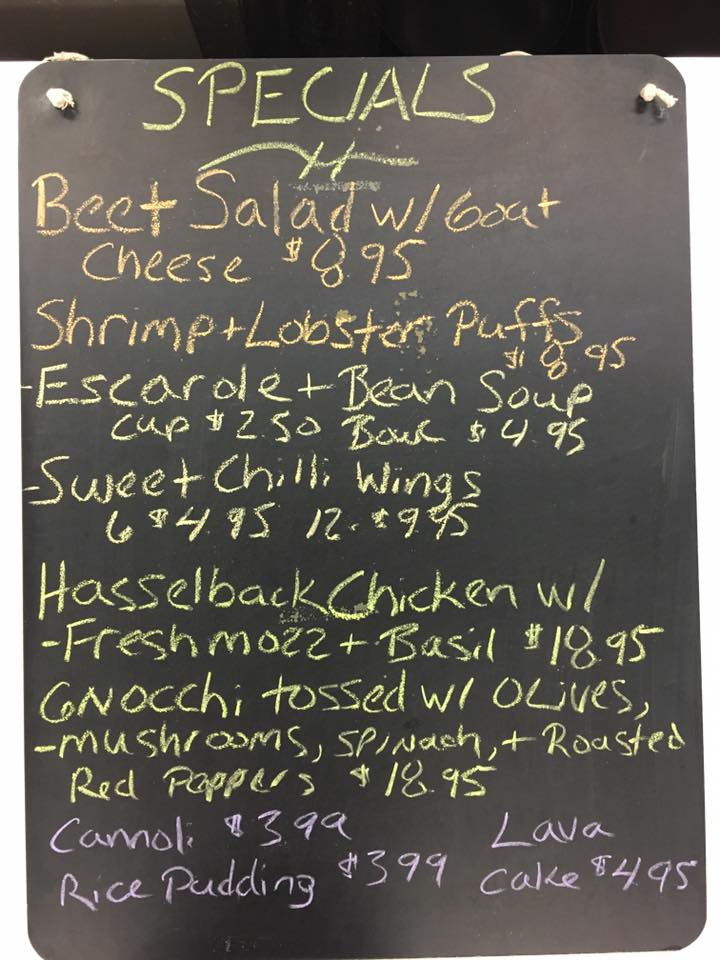 SPECIALS
Beet Salad w/ Goat
Cheese $8.95
Shrimp + Lobster Puffs
$8.95
-Escarole + Bean Soup
Cup $2.50 Bowl $4.95
-Sweet Chilli Wings
6 $4.95 12 $9.95
Hasselback Chicken w/
-Fresh mozz + Basil $18.95
GNOCCHi tossed w/ OLIVES,
-mushrooms, SPINach, + Roasted
Red Peppers $18.95
Cannoli $3.99
Rice Pudding $3.99
Lava
Cake $4.95